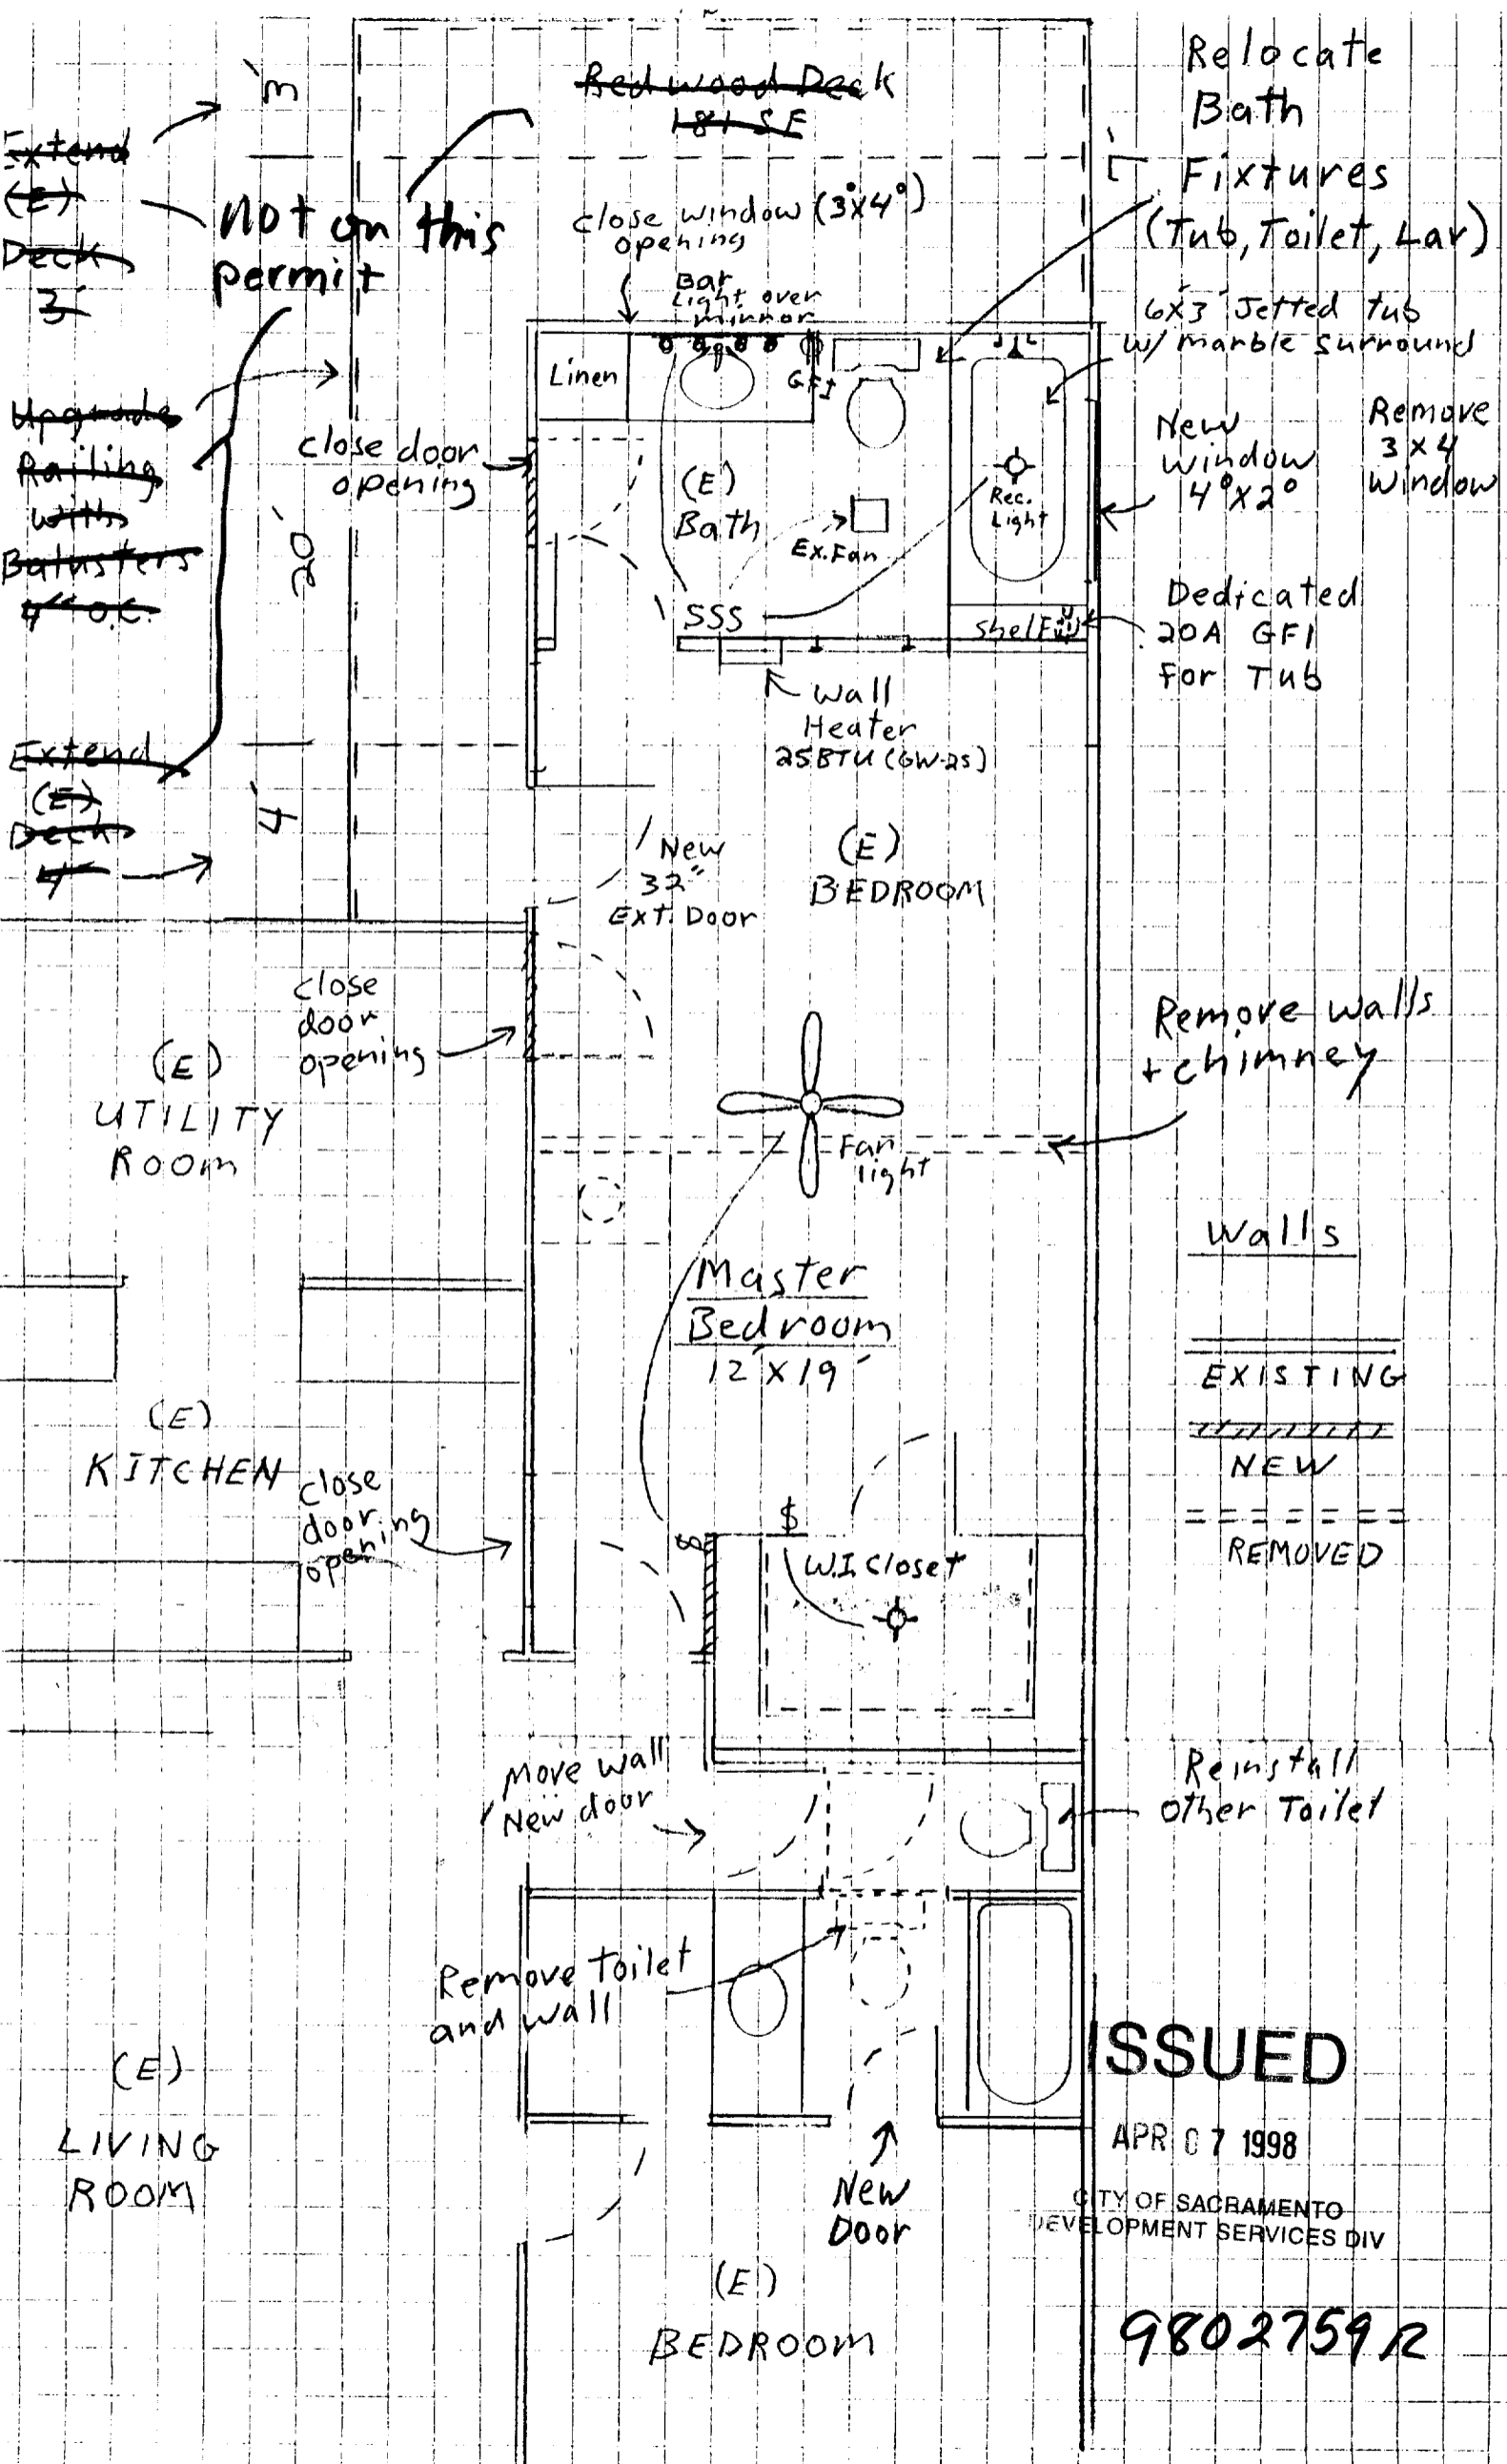 Redwood Deck
181 SF
3'
Extend
(E)
Deck
3'
not on this
permit
Relocate
Bath
Fixtures
(Tub, Toilet, Lav)
close window (3°x4°)
opening
Bar
Light over
mirror
6x3' Jetted tub
w/ marble surround
Linen
GFI
Upgrade
Railing
with
Balusters
4" O.C.
close door
opening
(E)
Bath
Ex. Fan
Rec.
Light
New
window
4°x2°
Remove
3x4
Window
20'
SSS
shelf
Dedicated
20A GFI
For Tub
wall
Heater
25BTU (GW-25)
Extend
(E)
Deck
4'
4'
New
32"
Ext. Door
(E)
BEDROOM
close
door
opening
(E)
UTILITY
ROOM
Remove walls
+ chimney
Fan
light
Master
Bedroom
12'x19'
Walls
EXISTING
NEW
REMOVED
(E)
KITCHEN
close
door
opening
$
W.I. Closet
Move wall
New door
Reinstall
other Toilet
Remove Toilet
and wall
(E)
LIVING
ROOM
New
Door
(E)
BEDROOM
ISSUED
APR 07 1998
CITY OF SACRAMENTO
DEVELOPMENT SERVICES DIV
9802759R